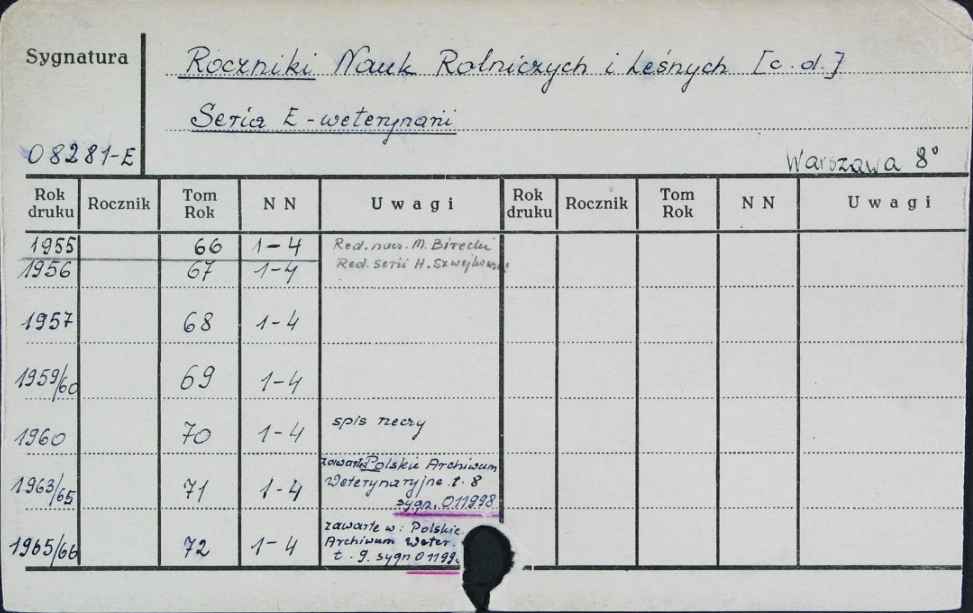 Sygnatura
Roczniki Nauk Rolniczych i Leśnych [c.d.]
Seria E - weterynarii
08281-E
Warszawa 8°
Rok druku Rocznik Tom Rok N N Uwagi Rok druku Rocznik Tom Rok N N Uwagi
1955 66 1-4 Red. nacz. M. Birecki
1956 67 1-4 Red. serii H.
1957 68 1-4
1959/60 69 1-4
1960 70 1-4 spis rzeczy
zawarte Polskie Archiwum
1963/65 71 1-4 Weterynaryjne t. 8
sygn. 011998
zawarte w: Polskie
1965/66 72 1-4 Archiwum Weter.
t. 9. sygn 01199